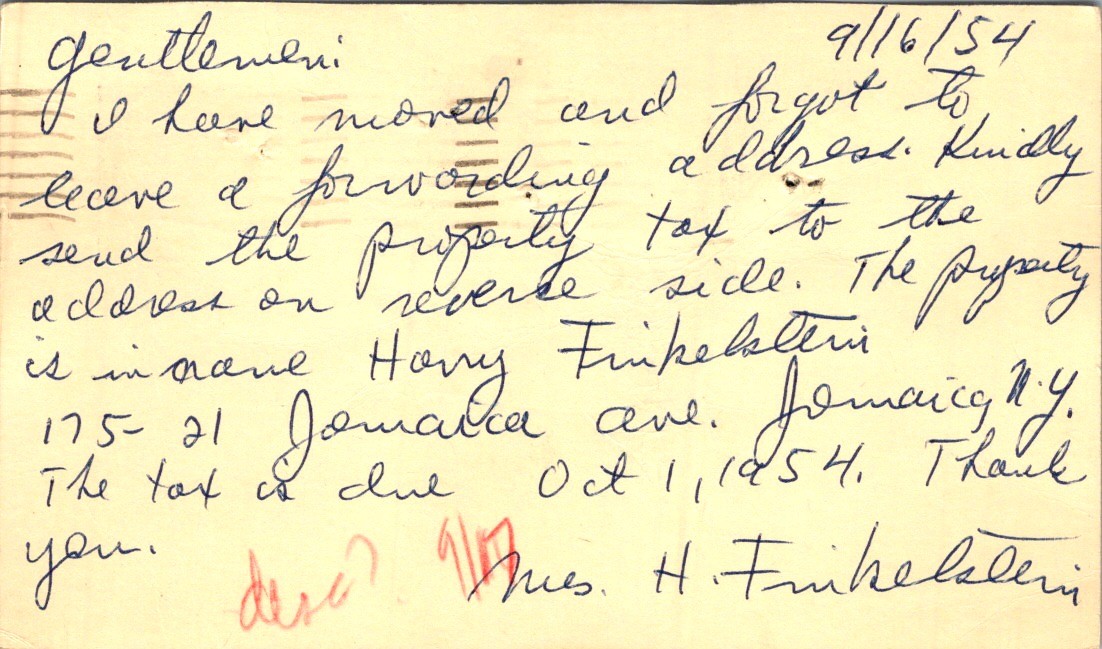 9/16/54
Gentlemen:
I have moved and forgot to
leave a forwarding address. Kindly
send the property tax to the
address on reverse side. The property
is in name Harry Finkelstein
175-21 Jamaica Ave. Jamaica, N.Y.
The tax is due Oct 1, 1954. Thank
you.
Mrs. H. Finkelstein
desc? 9/17